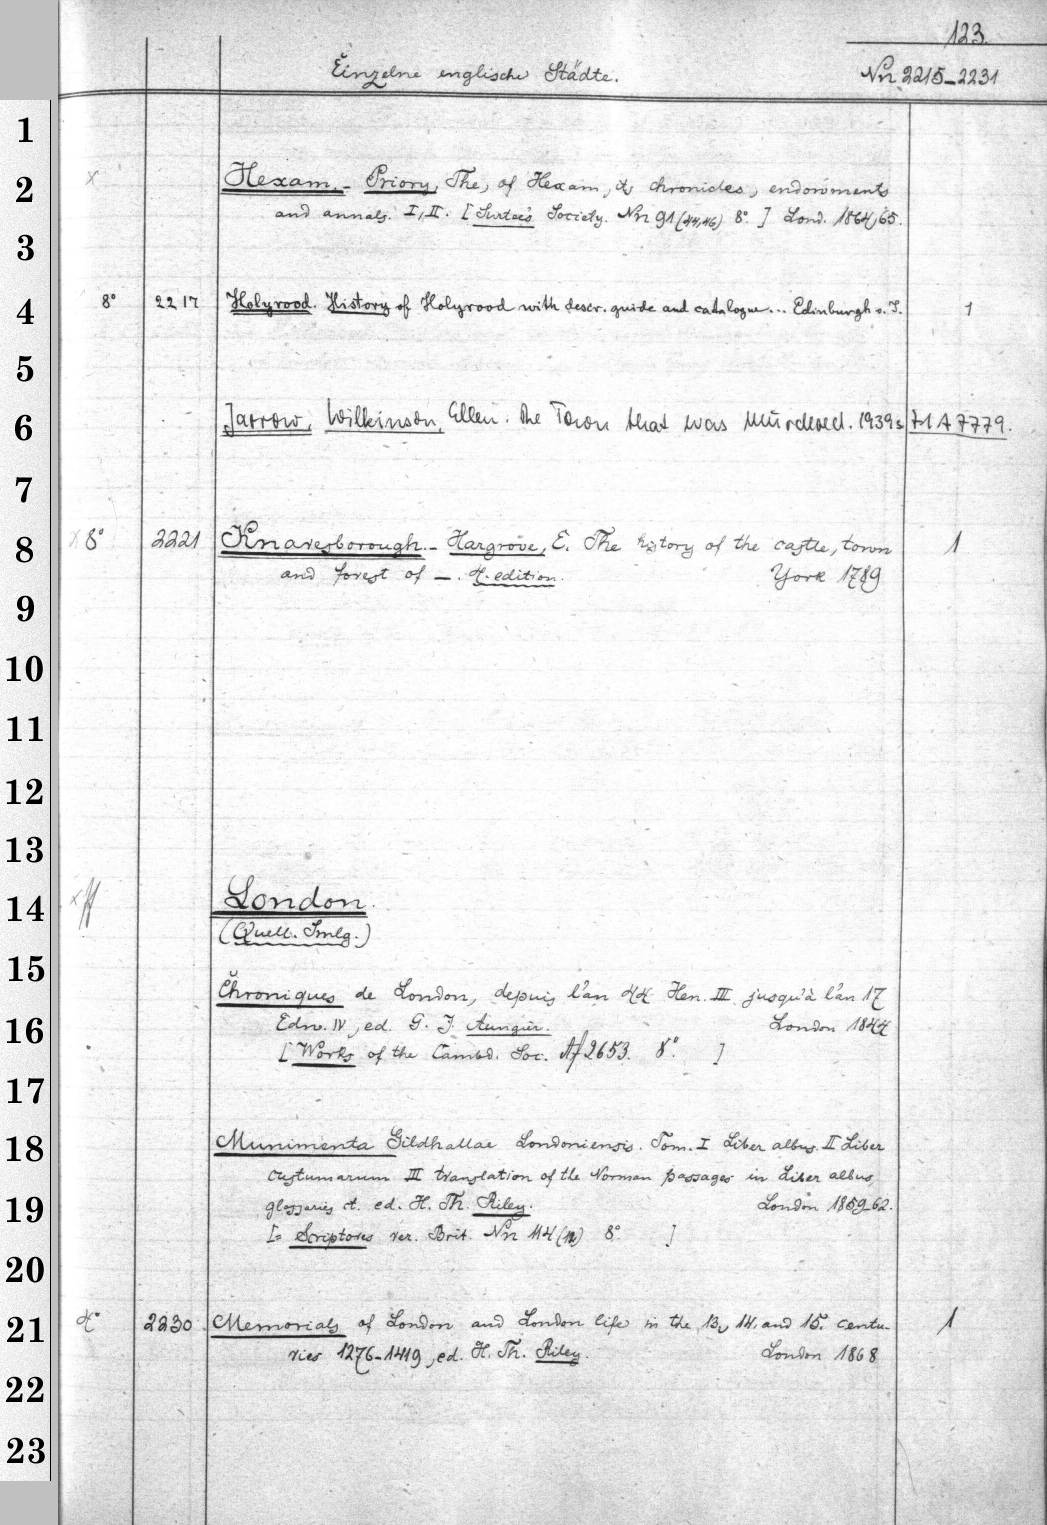 123.
Einzelne englische Städte. Nn 2215-2231
1
2 x Hexam. - Priory, The, of Hexam, its chronicles, endowments
and annals. I, II. [Surtees Society. Nn 91 (44,46) 8°. ] Lond. 1864,65.
3
4 8° 2217 Holyrood. History of Holyrood with descr. guide and catalogue... Edinburgh s. J. 1
5
6 Jarrow, Wilkinson, Ellen. The Town that was Murdered. 1939
7
8 x 8° 2221 Knaresborough. - Hargrove, E. The history of the castle, town 1
and forest of -. 4. edition. York 1789
9
10
11
12
13
14 x London.
(Quell. Smlg.)
15
Chroniques de London, depuis l'an 44 Hen. III jusqu'à l'an 17
16 Edw. IV, ed. G. J. Aungier. London 1844
[Works of the Cambd. Soc. Af 2653. 8°. ]
17
18 Munimenta Gildhallae Londoniensis. Tom. I Liber albus. II Liber
custumarum III translation of the Norman passages in Liber albus,
19 glossaries ct. ed. H. Th. Riley. London 1859-62.
[= Scriptores rer. Brit. Nn 114 (12) 8°. ]
20
21 4° 2230 Memorials of London and London life in the 13, 14. and 15. centu- 1
ries 1276-1419, ed. H. Th. Riley. London 1868
22
23